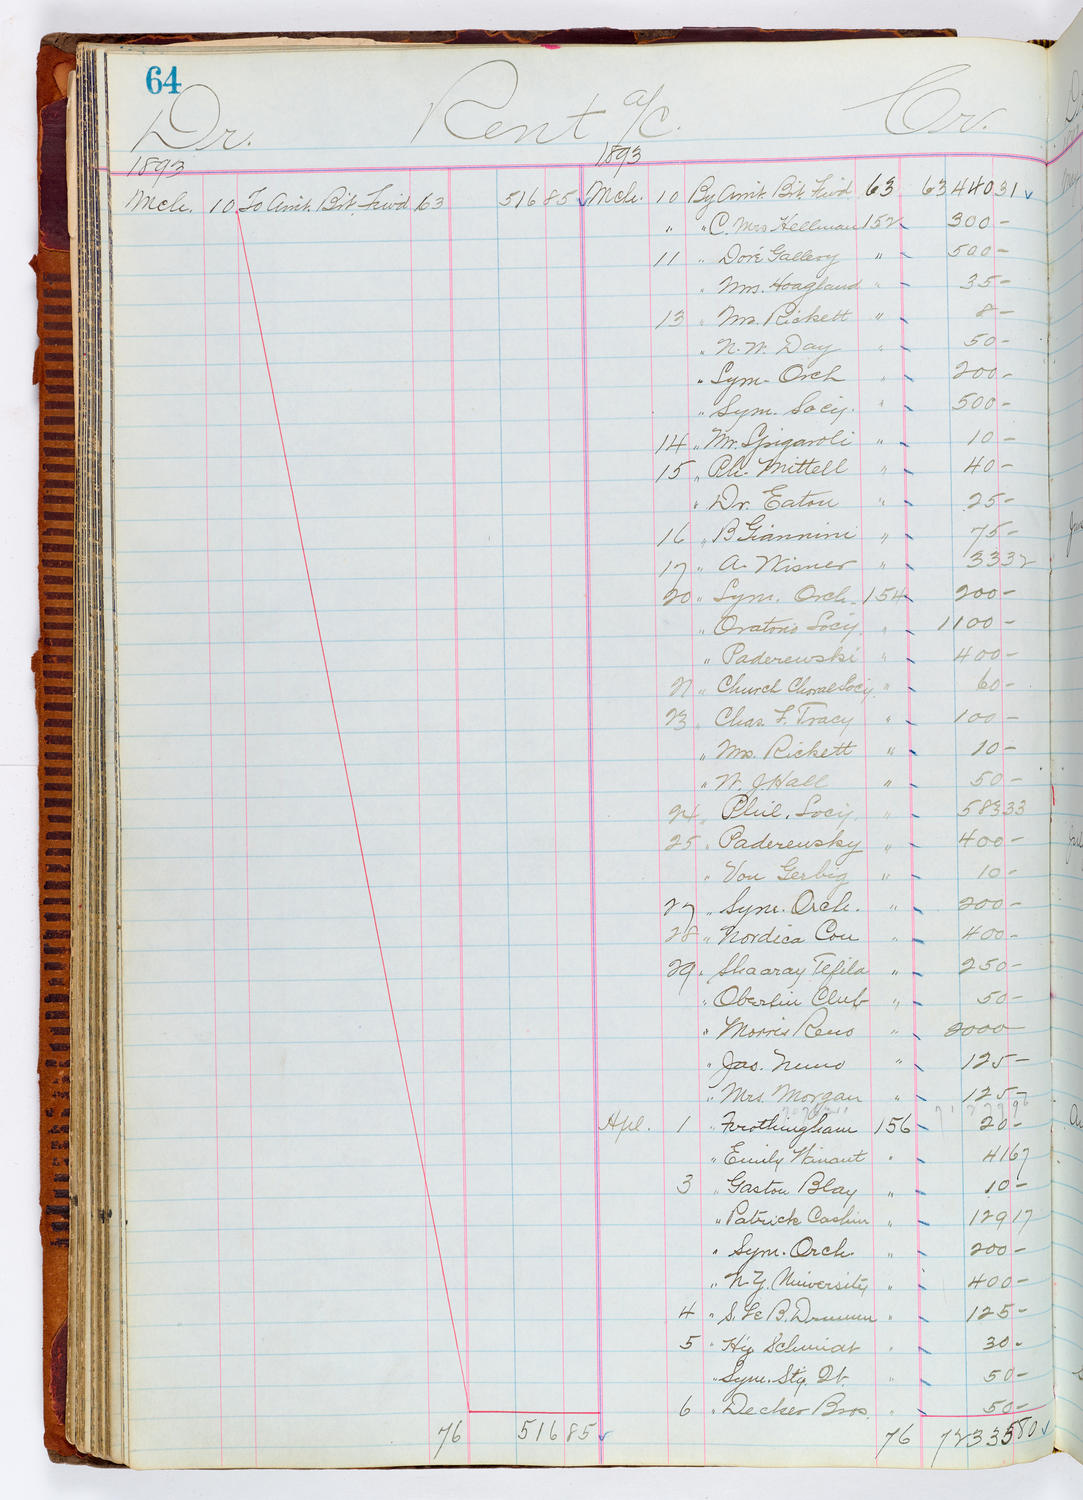 64
Dr. Rent a/c. Cr.
1893 1893
Mch. 10 To Amt. Brt. Fwd 63 516 85 Mch. 10 By Amt. Brt. Fwd 63 63440 31
" " C. Mrs Hellman 152 300 -
11 " Doré Gallery " 500 -
" Mrs. Hoagland " 35 -
13 " Mrs. Rickett " 8 -
" N. W. Day " 50 -
" Sym. Orch " 200 -
" Sym. Socy. " 500 -
14 " Mr. Spigaroli " 10 -
15 " Ph. Mittell " 40 -
" Dr. Eaton " 25 -
16 " B Giannini " 75 -
17 " A. Wisner " 33 32
20 " Sym. Orch. 154 200 -
" Oratorio Socy. " 1100 -
" Paderewski " 400 -
21 " Church Choral Socy. " 60 -
23 " Chas. F. Tracy " 100 -
" Mrs. Rickett " 10 -
" W. J Hall " 50 -
24 " Phil. Socy. " 583 33
25 " Paderewsky " 400 -
" Von Gerbig " 10 -
27 " Sym. Orch. " 200 -
28 " Nordica Con " 400 -
29 " Shaaray Tefila " 250 -
" Oberlin Club " 50 -
" Morris Reno " 2000 -
" Jas. Nuno " 125 -
" Mrs. Morgan " 125 -
Apl. 1 " Frothingham 156 20 -
" Emily Winant " 41 67
3 " Gaston Blay " 10 -
" Patrick Cashin " 129 17
" Sym. Orch. " 200 -
" N.Y. University " 400 -
4 " S. Le B. Drumm " 125 -
5 " Hy. Schmidt " 30 -
" Sym. Stg. Qt. " 50 -
6 " Decker Bros. " 50 -
76 516 85 76 72335 80